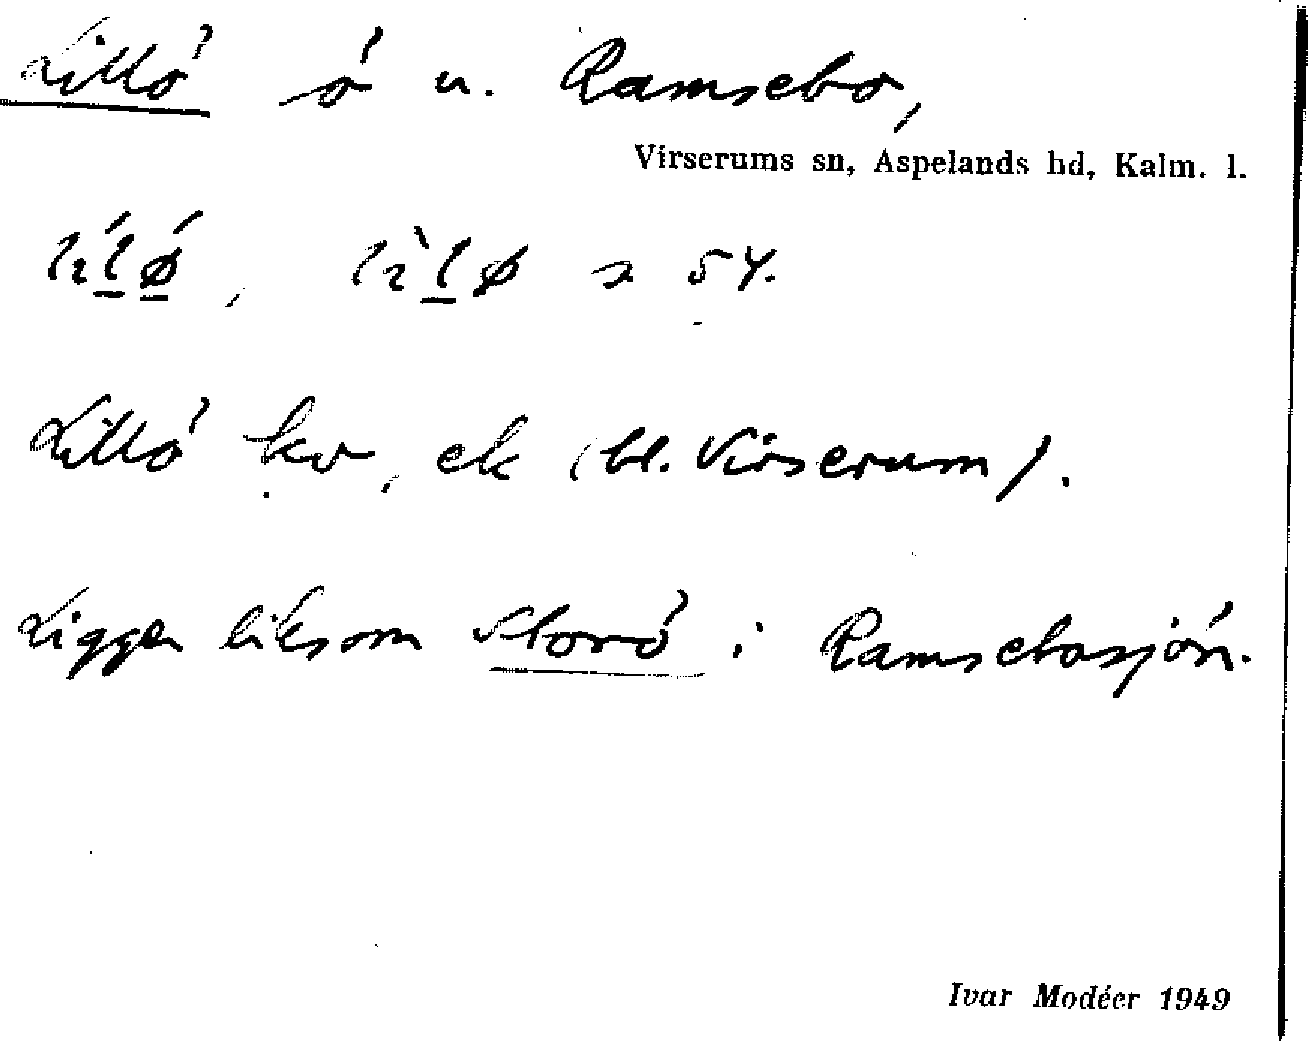 Lillö ö u. Ramsebo,
Virserums sn, Aspelands hd, Kalm. l.
54.
Lillö kv, ek (bl. Virserum).
Ligger liksom Storö i Ramsebosjön.
Ivar Modéer 1949